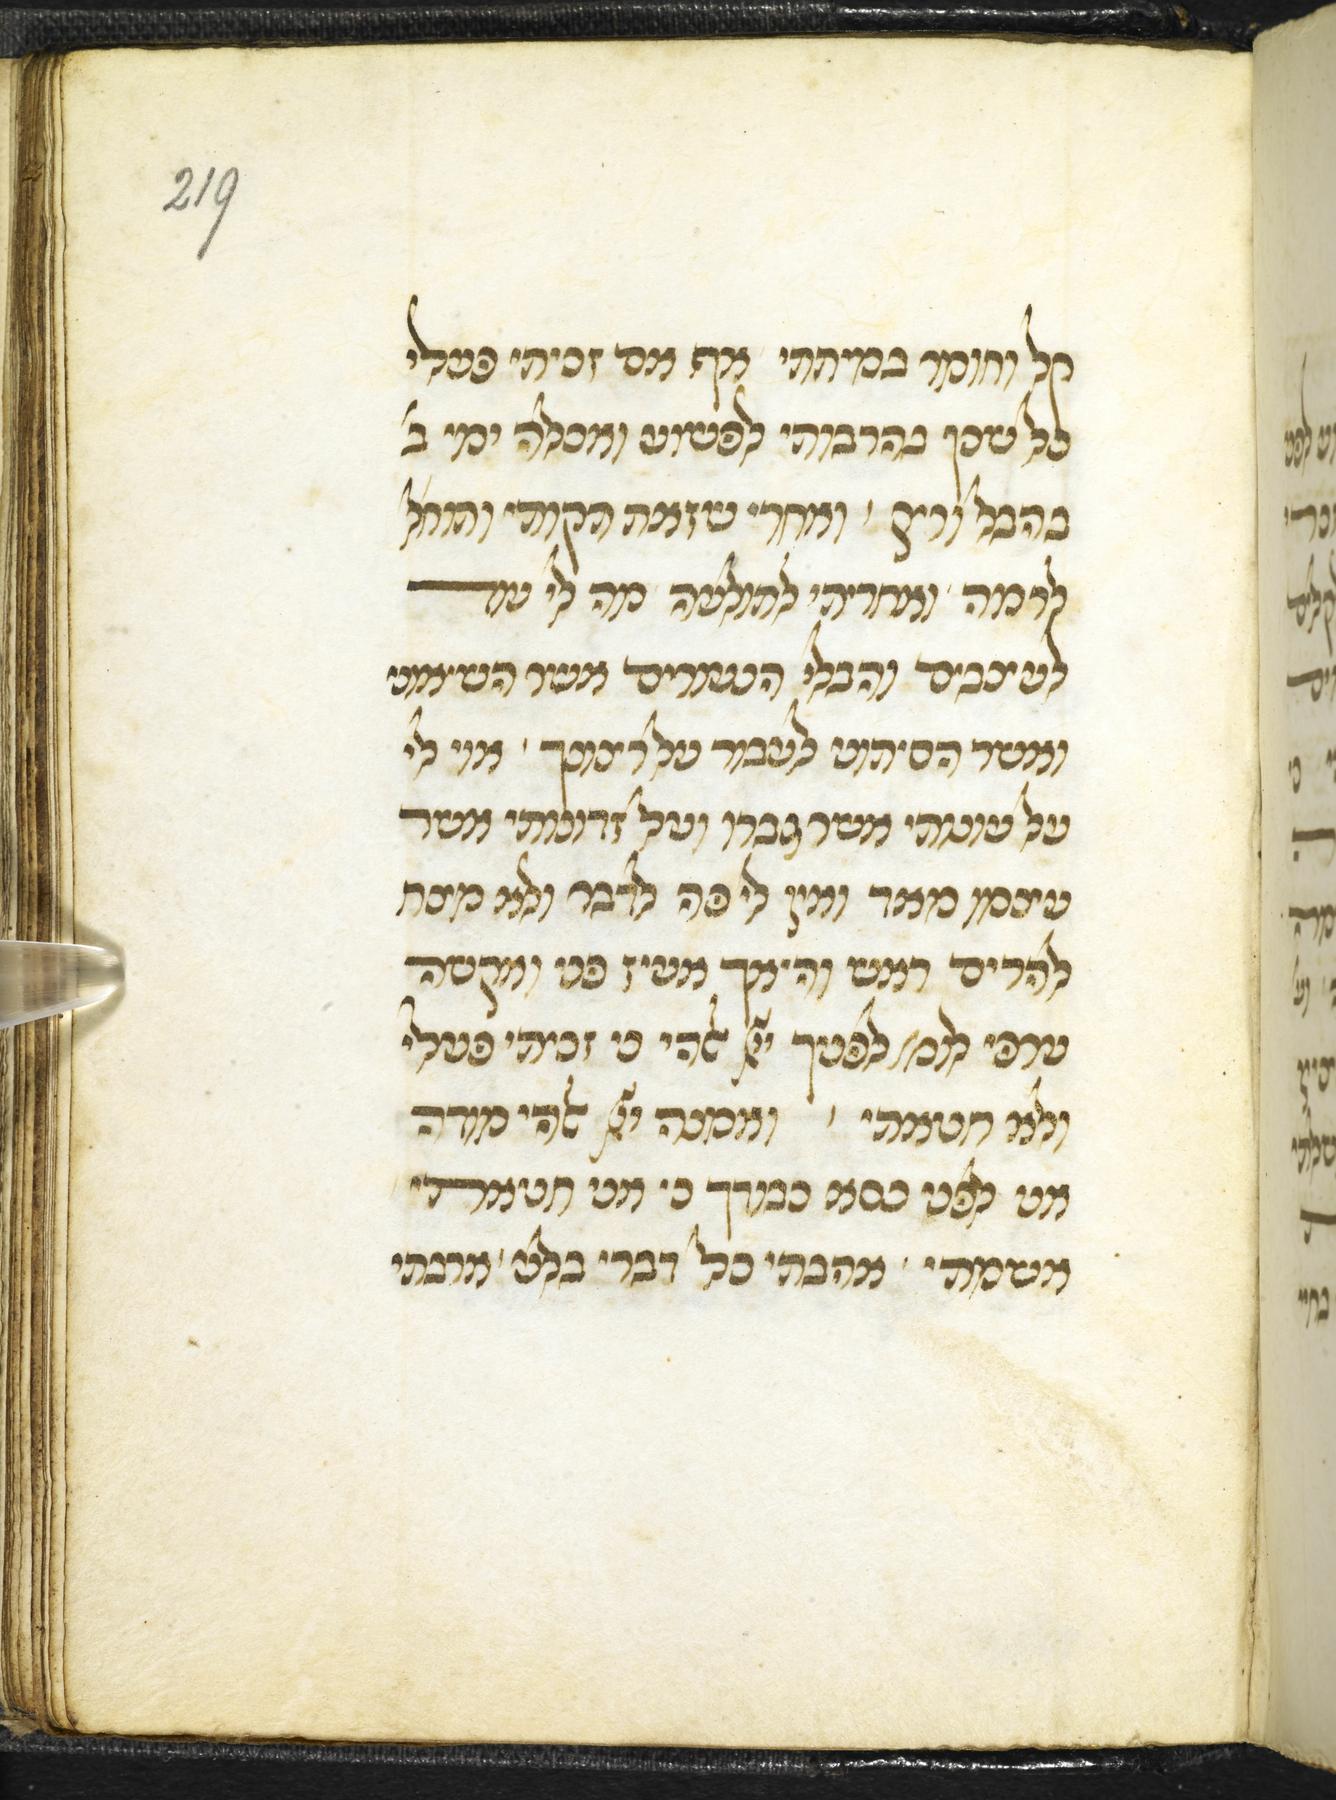 219
קל וחומר במיתתי אף אם זכיתי פעלי
כל שכן בהרבותי לפשוע ואכלה ימי ב
בהבל וריק ׳ ואחרי שזאת תקותי ותוחל
לרמה ׳ ואחריתי לתולעה מה לי עוד
לעיכבים והבלי הנעורים אשר השיאוני
ואשר הסיתוני לעבור על רצונך ׳ אוי לי
על עונותי אשר גברו ועל זדונותי אשר
עצמו מאד ואין לי פה לדבר ולא מצח
להרים ראש והיאך אעיז פני ואקשה
ערפי לומ׳ לפניך יי׳ אלהי כי זכיתי פעלי
ולא חטאתי ׳ ואמנה יי׳ אלהי מודה
אני לפני כסא כבודך כי אני חטאתי
אשמתי ׳ אהבתי כל דברי בלע ׳ ארבתי